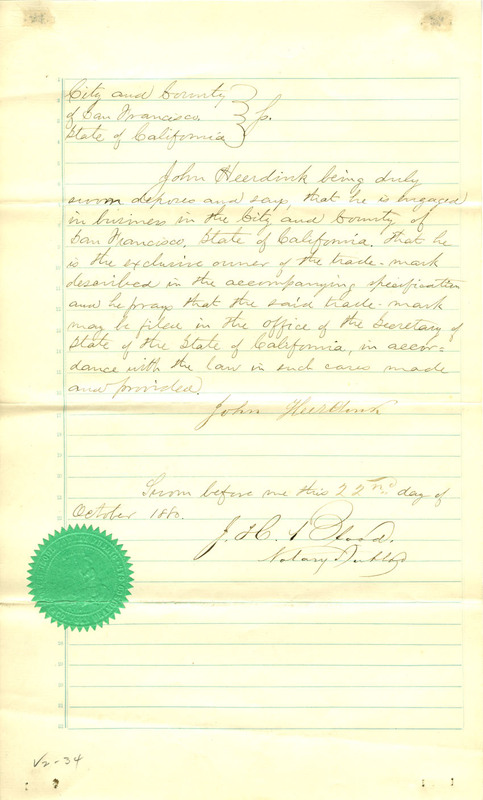 City and County
of San Francisco.
State of California
John Heerdink being duly
sworn deposes and says, that he is engaged
in business in the City and County of
San Francisco, State of California. that he
is the exclusive owner of the trade-mark
described in the accompanying specification
and he prays that the said trade-mark
may be filed in the office of the Secretary of
State of the State of California, in accor-
dance with the law in such cases made
and provided.
John Heerdink
Sworn before me this 22nd day of
October 1880.
Blood.
Notary Public
V2-34